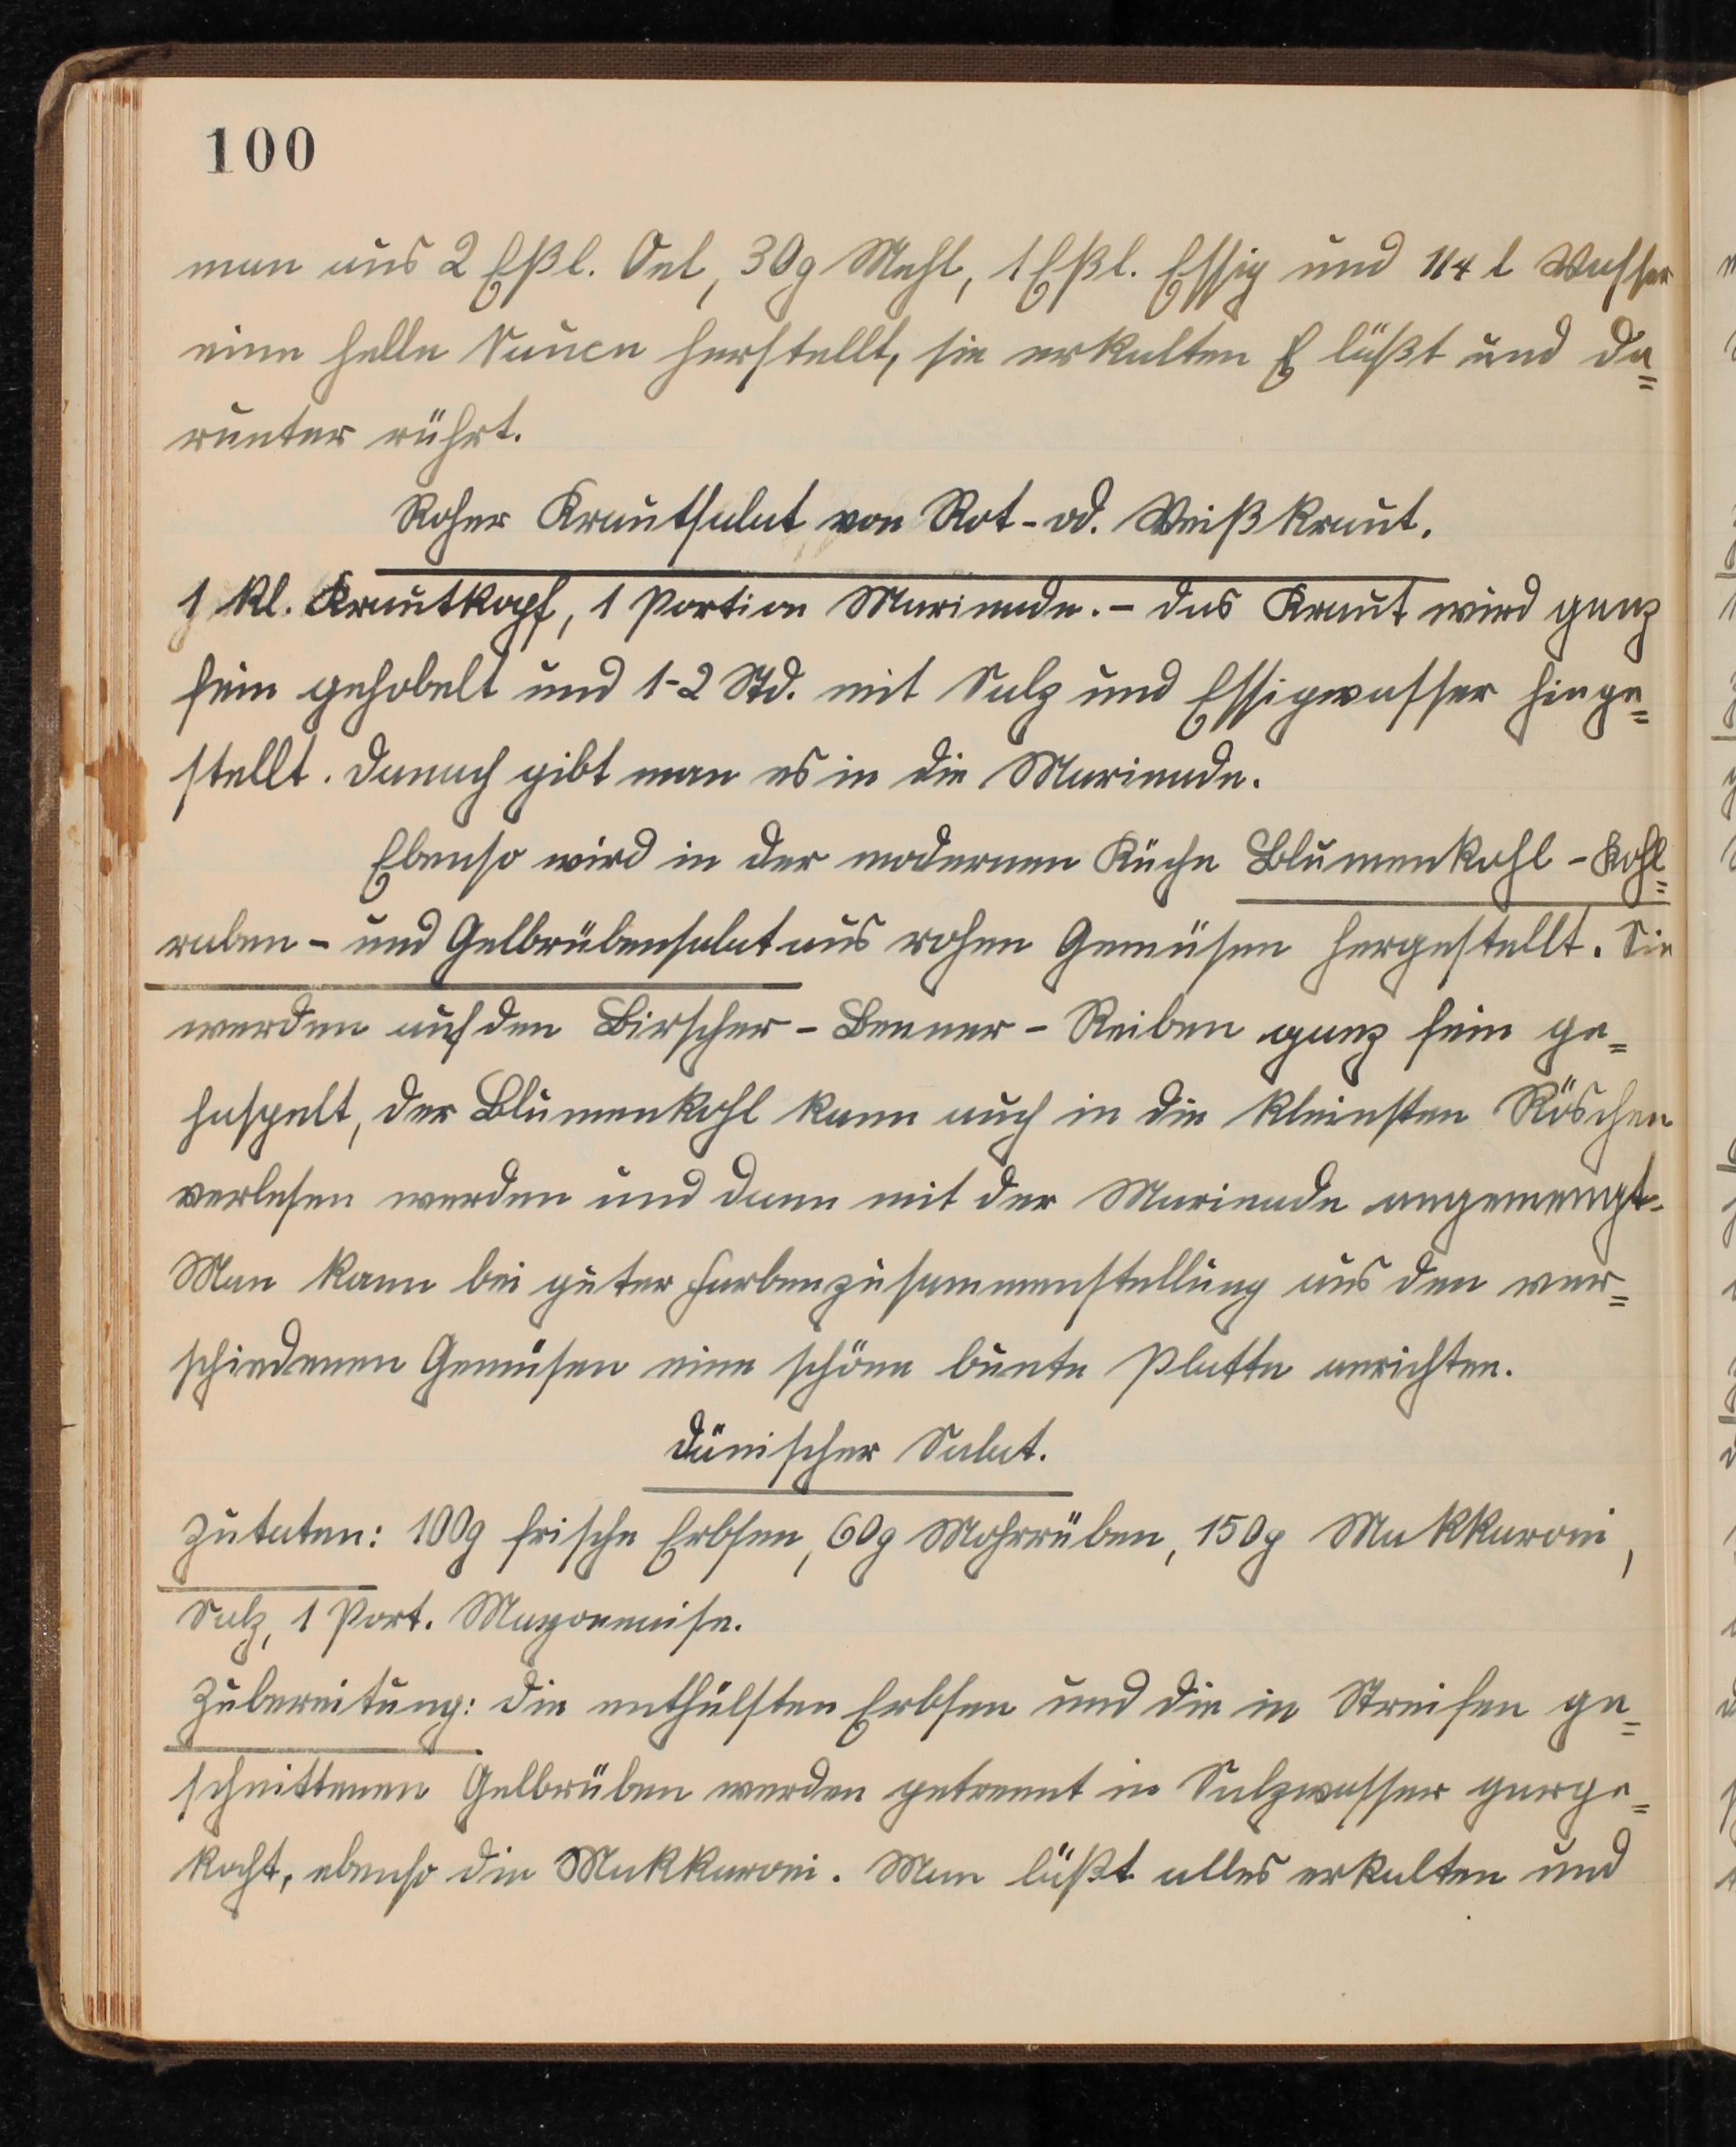 100
man aus 2 Eßl. Oel, 30g Mehl, 1 Eßl. Essig und 1/4 l Wasser
eine helle Sauce herstellt, sie erkalten läßt und da=
runter rührt.
Roher Krautsalat von Rot- od. Weißkraut.
1 kl. Krautkopf, 1 Portion Marinade. - Das Kraut wird ganz
fein gehobelt und 1-2 Std. mit Salz und Essigwasser hinge=
stellt. Danach gibt man es in die Marinade.
Ebenso wird in der modernen Küche Blumenkohl - Kohl=
raben - und Gelbrübensalat aus rohen Gemüsen hergestellt. Sie
werden auf den Birscher - Benner - Reiben ganz fein ge=
haspelt, der Blumenkohl kann auch in die kleinsten Röschen
verlesen werden und dann mit der Marinade angemengt.
Man kann bei guter Farbenzusammenstellung aus den ver=
schiedenen Gemüsen eine schöne bunte Platte anrichten.
Dänischer Salat.
Zutaten: 100g frische Erbsen, 60g Mohrrüben, 150g Makkaroni,
Salz, 1 Port. Mayonnaise.
Zubereitung: Die enthülsten Erbsen und die in Streifen ge=
schnittenen Gelbrüben werden getrennt in Salzwasser garge=
kocht, ebenso die Makkaroni. Man läßt alles erkalten und